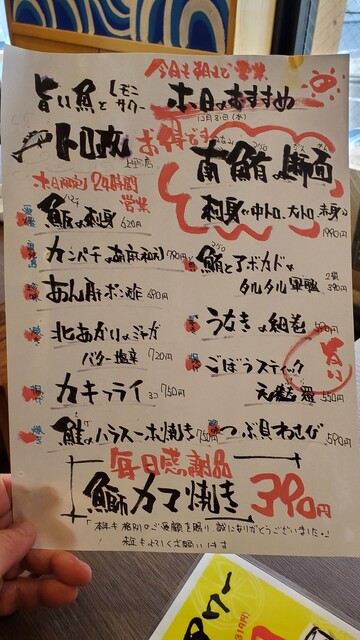 今日も朝まで営業
旨い魚と レモンサワー
本日のおすすめ
12月31日(水)
トロ丸
上野店
お得です
本日限定 24時間営業
南鮪の断面
刺身(中トロ、大トロ、赤身)
1990円
刺身 620円
カンパチの 780円
鮪とアボカドの
タルタル軍艦 2貫 390円
あん肝ポン酢 690円
うなきゅう細巻 590円
北あかりのジャガ
バター塩辛 720円
ごぼうスティック
550円
旨い
カキフライ 3コ 750円
鮭のハラス一本焼き 750円
つぶ貝わさび 590円
毎日感謝品
鰤カマ焼き 390円
本年も格別のご愛顧を賜り誠にありがとうございました。
来年もよろしくお願いします